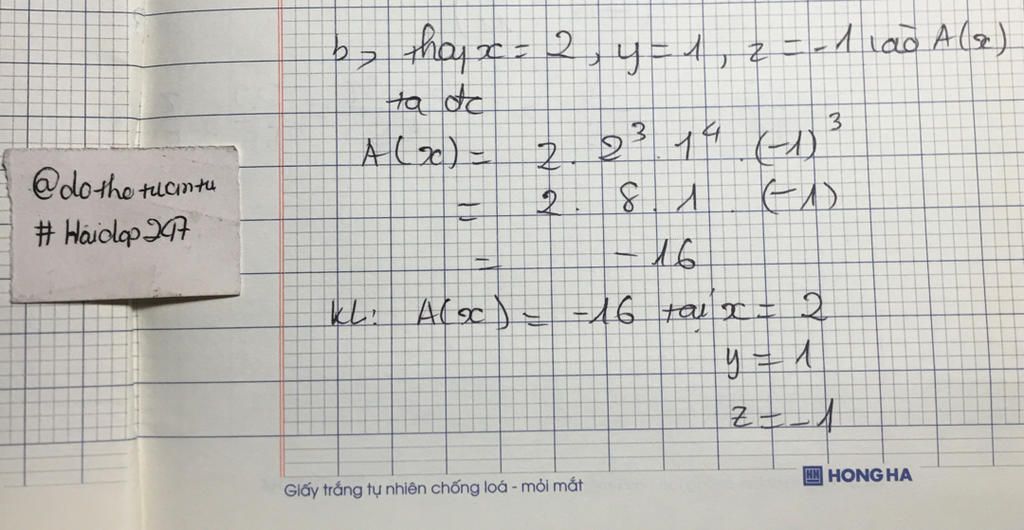 b, thay x = 2, y = 1, z = -1 vào A(x)
ta đc
A(x) = 2 . 2³ . 1⁴ . (-1)³
= 2 . 8 . 1 . (-1)
= -16
KL: A(x) = -16 tại x = 2
y = 1
z = -1
@dothetuantu
# Hoidap247
Giấy trắng tự nhiên chống loá - mỏi mắt
HH HONG HA